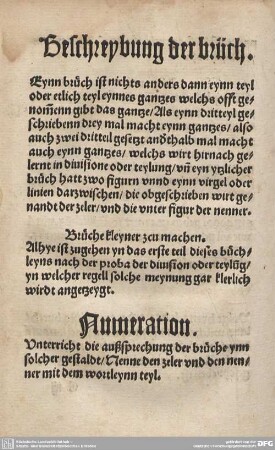 Beschreybung der brüch.
Eynn brüch ist nichts anders dann eynn teyl
oder etlich teyl eynnes gantzes welchs offt ge-
nom̃enn gibt das gantze/Als eynn dritteyl ge-
schriebenn drey mal macht eynn gantzes/also
auch zwei dritteil gesetzt and̕thalb mal macht
auch eynn gantzes/welchs wirt hirnach ge-
lernt in diuisione oder teylung/vñ eyn ytzlicher
brüch hatt zwo figurn vnnd eynn virgel oder
linien darzwischen/die obgeschrieben wirt ge-
nandt der zeler/vnd die vnter figur der nenner.
Brüche kleyner zcu machen.
Alhye ist zugehen yn das erste teil dieses büch-
leyns nach der proba der diuision oder teylūg/
yn welcher regell solche meynung gar klerlich
wirdt angetzeygt.
Numeration.
Vnterricht die außsprechung der brüche ynn
solcher gestaldt/Nenne den zeler vnd den nen-
ner mit dem wortleynn teyl.